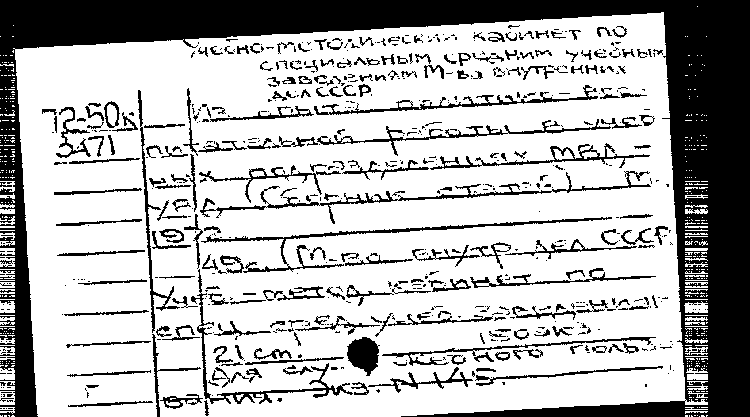 Учебно-методический кабинет по
специальным средним учебным
заведениям М-ва внутренних
дел СССР
72-50к
3471
Из опыта политико-вос-
питательной работы в учеб-
ных подразделениях МВД, -
УВД. (Сборник статей). М.,
1972
49с. (М-во внутр. дел СССР.
Учеб.-метод. кабинет по
спец. сред. учеб. заведениям
21 cm. 150экз.
Для слу- жебного пользо-
вания. Экз. N 145.